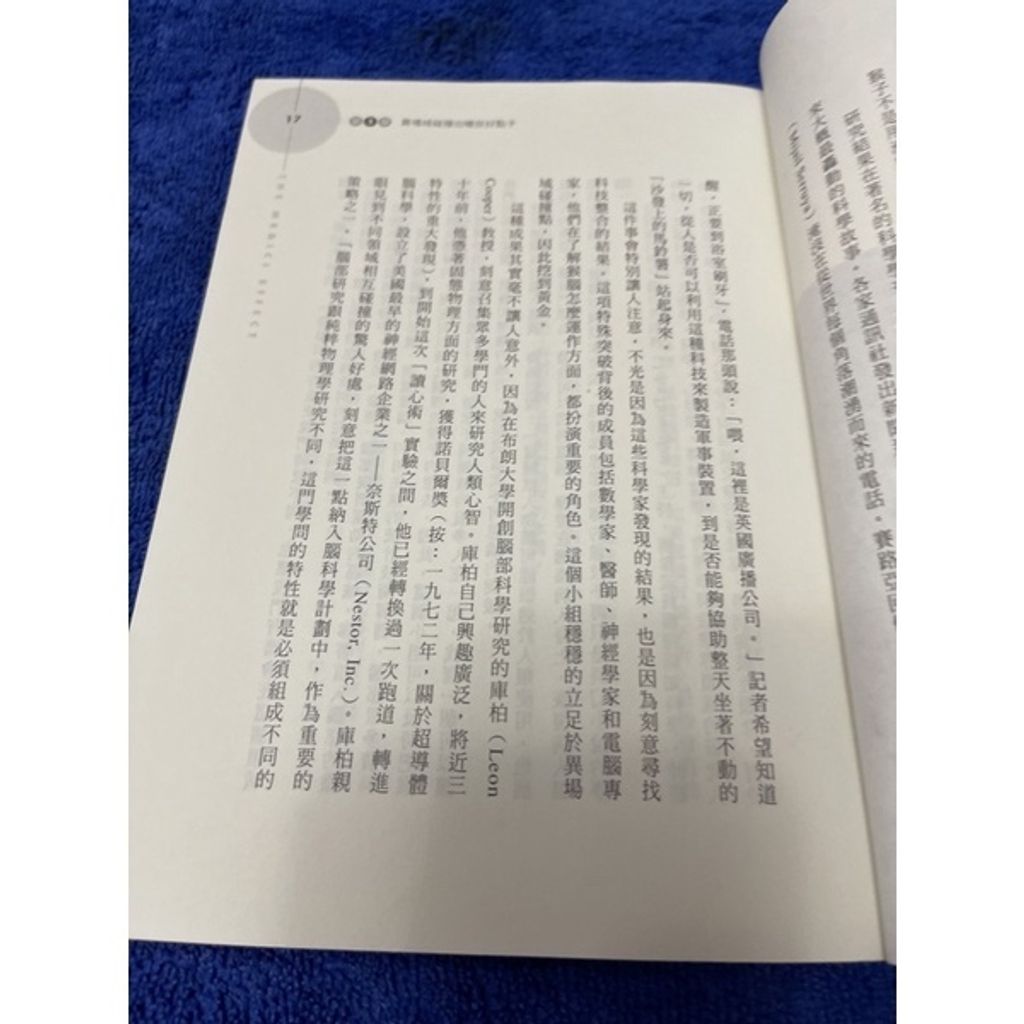 17
醒，正要到浴室刷牙」，電話那頭說：「喂，這裡是英國廣播公司。」記者希望知道
一切，從人是否可以利用這種科技來製造軍事裝置，到是否能夠協助整天坐著不動的
「沙發上的馬鈴薯」站起身來。
這件事會特別讓人注意，不光是因為這些科學家發現的結果，也是因為刻意尋找
科技整合的結果。這項特殊突破背後的成員包括數學家、醫師、神經學家和電腦專
家，他們在了解猴腦怎麼運作方面，都扮演重要的角色。這個小組穩穩的立足於異場
域碰撞點，因此挖到黃金。
這種成果其實毫不讓人意外，因為在布朗大學開創腦部科學研究的庫柏（Leon
Cooper）教授，刻意召集眾多學門的人來研究人類心智。庫柏自己興趣廣泛，將近三
十年前，他憑著固態物理方面的研究，獲得諾貝爾獎（按：一九七二年，關於超導體
特性的重大發現），到開始這次「讀心術」實驗之間，他已經轉換過一次跑道，轉進
腦科學，設立了美國最早的神經網路企業之一——奈斯特公司（Nestor, Inc.）。庫柏親
眼見到不同領域相互碰撞的驚人好處，刻意把這一點納入腦科學計劃中，作為重要的
策略之一。「腦部研究跟純粹物理學研究不同，這門學問的特性就是必須組成不同的
猴子不是用
研究結果在著名的科學學
來大最轟動的科學故事。各家通訊社發出新聞
從世界各個角落潮湧而來的電話。賽路亞回